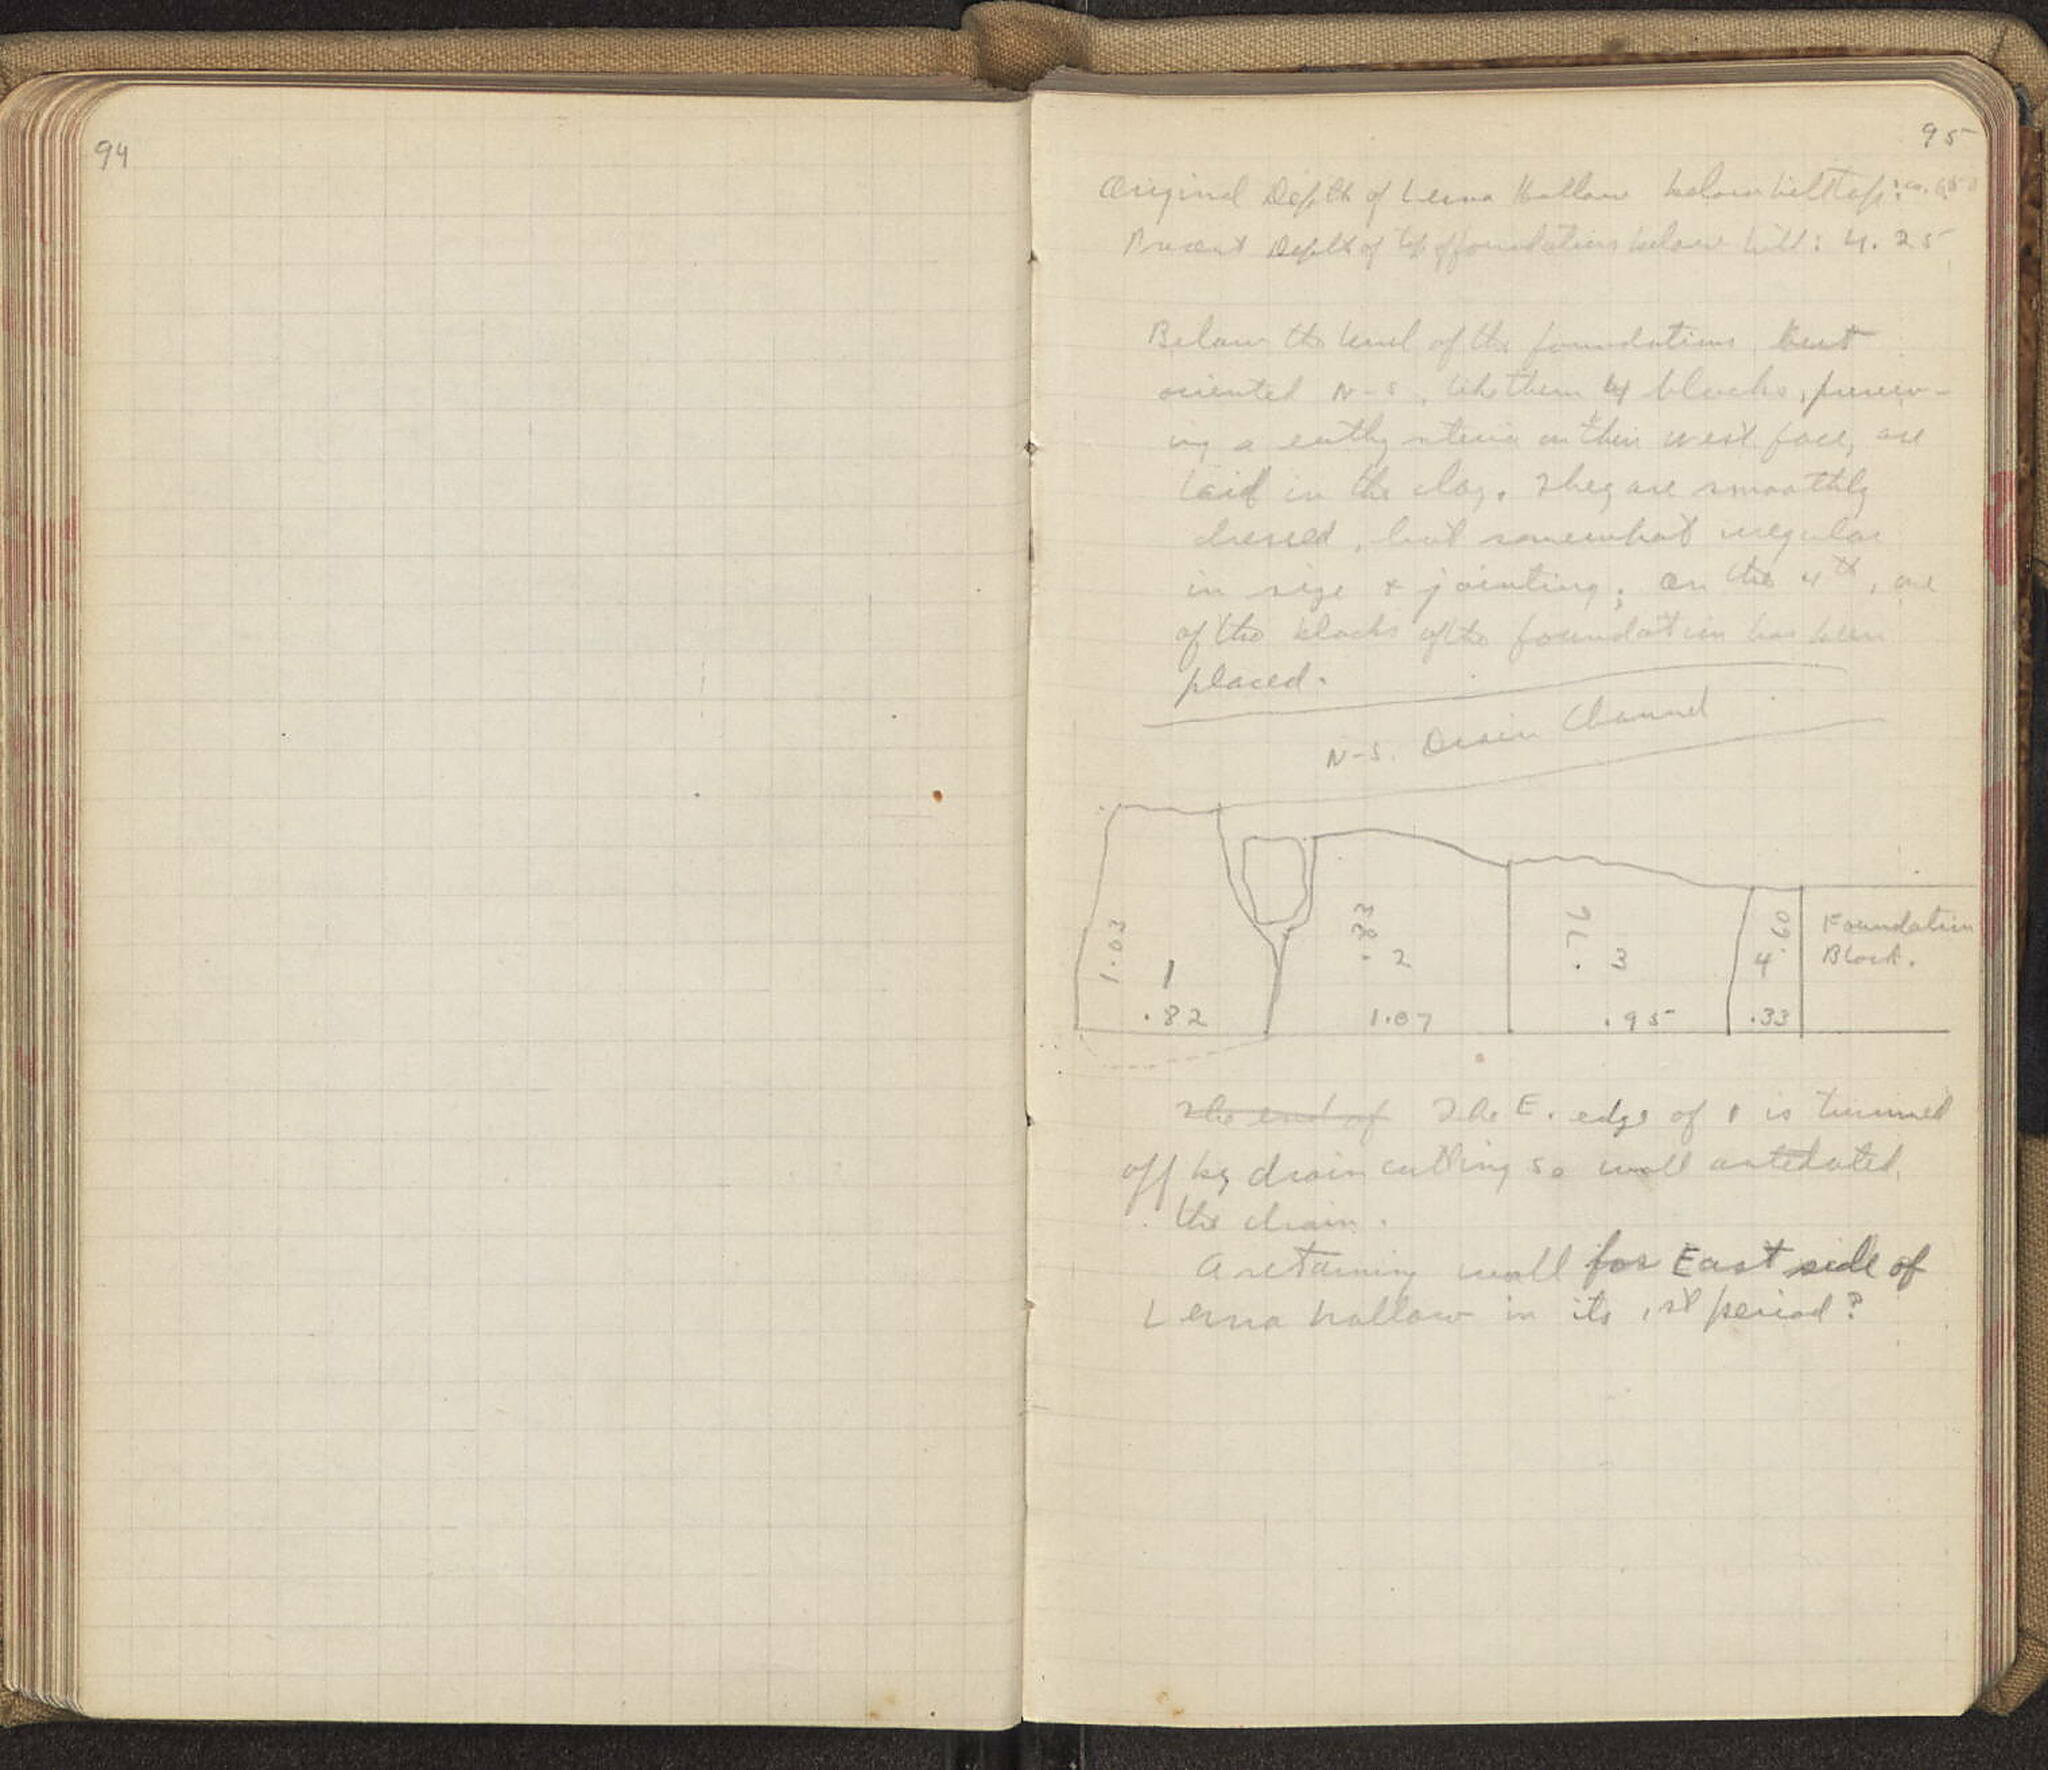 94
95
Original Depth of Lerna Hollow below hilltop: ca.
Present Depth of top of foundations below hill: 4.25
Below the level of the foundations but
oriented N-S, like them 4 blocks, preserv-
ing a earthy on their west face, are
laid in the clay. They are smoothly
dressed, but somewhat irregular
in size & jointing; on the 4th, one
of the blocks of the foundation has been
placed.
N-S. Drain Channel
1.03
1
.82
.83
2
1.07
.76
3
.95
.60
4
.33
Foundation
Block.
The end of The E. edge of 1 is trimmed
off by drain cutting so wall antedated
the drain.
A retaining wall for East side of
Lerna hollow in its 1st period?